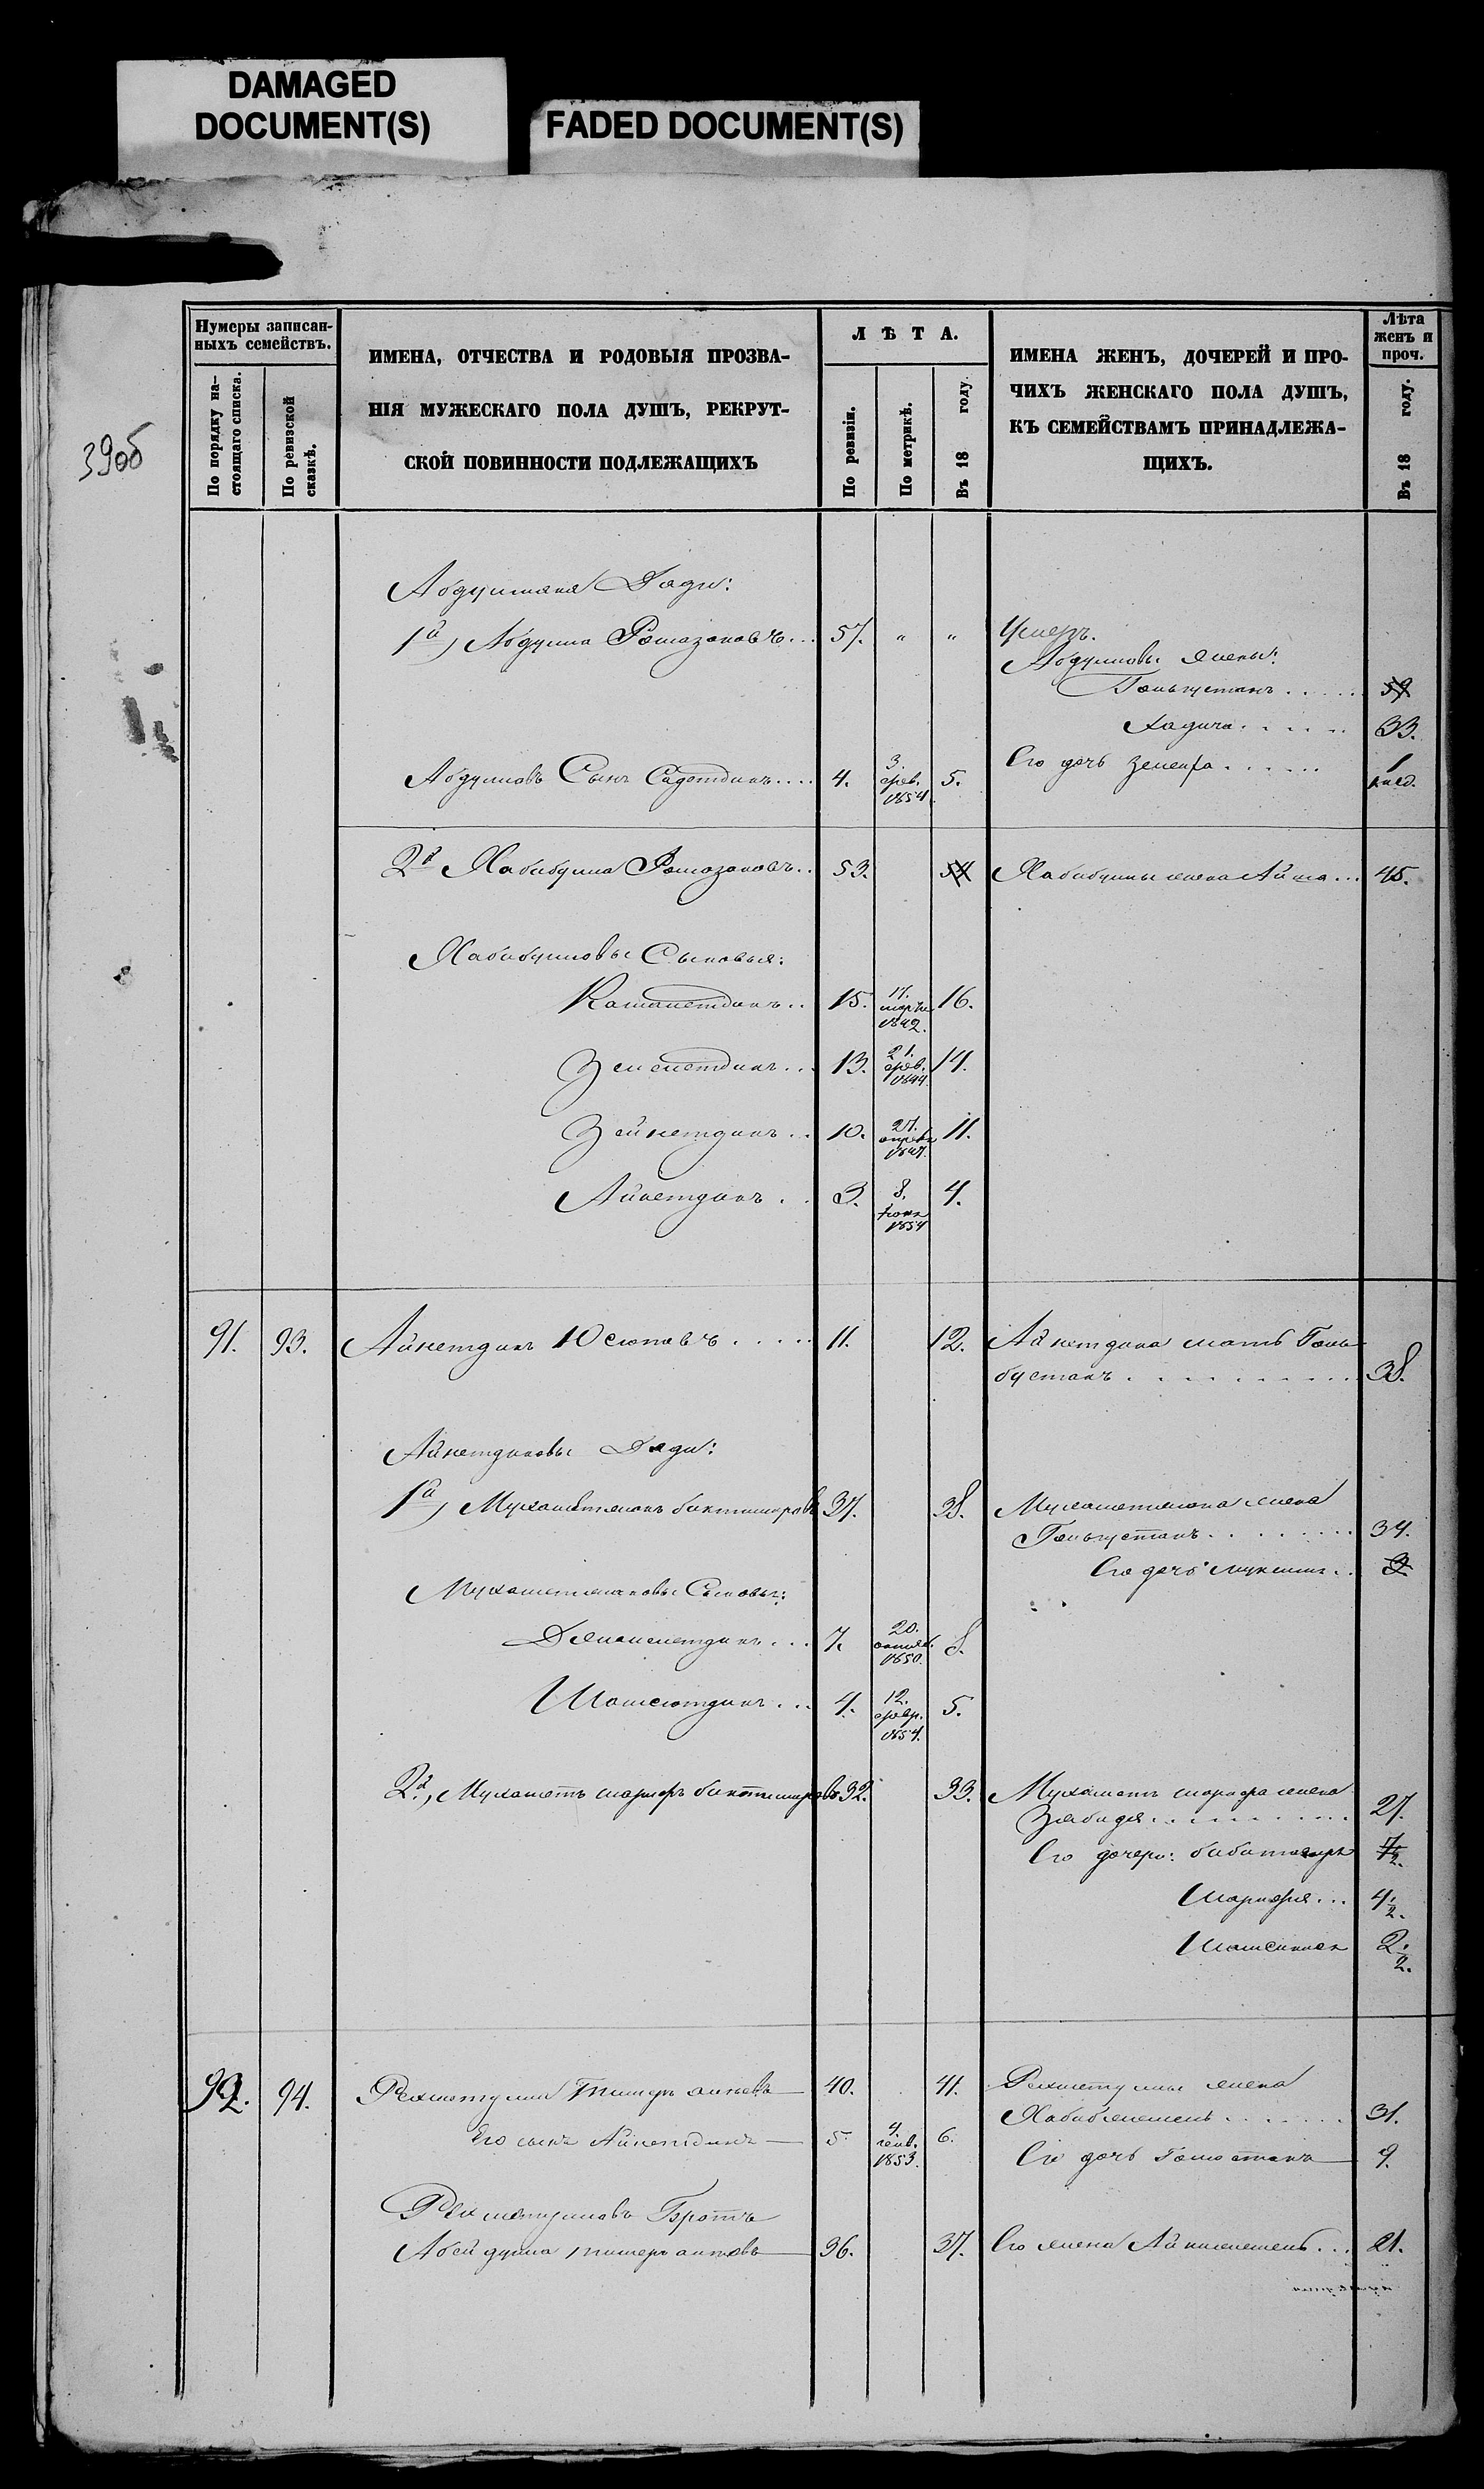 DAMAGED
DOCUMENT(S)
FADED DOCUMENT(S)
39об
Нумеры записан-
ныхъ семействъ.
По порядку на-
стоящаго списка.
По ревизской
сказкѣ.
ИМЕНА, ОТЧЕСТВА И РОДОВЫЯ ПРОЗВА-
НІЯ МУЖЕСКАГО ПОЛА ДУШЪ, РЕКРУТ-
СКОЙ ПОВИННОСТИ ПОДЛЕЖАЩИХЪ
ЛѢТА.
По ревизіи.
По метрикѣ.
Въ 18 году.
ИМЕНА ЖЕНЪ, ДОЧЕРЕЙ И ПРО-
ЧИХЪ ЖЕНСКАГО ПОЛА ДУШЪ,
КЪ СЕМЕЙСТВАМЪ ПРИНАДЛЕЖА-
ЩИХЪ.
Лѣта
женъ и
проч.
Въ 18 году.
Дяди:
1й, Абдулла Рамазановъ... 57. " " Умеръ.
Абдулловы жены:
59
Хадича..... 33.
Абдулловъ Сынъ Садетдинъ.... 4. 3. фев. 1854 5. Его дочь 1
2й Хабибулла Рамазановъ.. 53. 54 Хабибуллы жена Айша... 45.
Хабибулловы Сыновья:
Камалетдинъ.. 15. 17. марта 1842. 16.
13. 21. фев. 1844. 14.
Зейнетдинъ.. 10. 27. 1847. 11.
Айнетдинъ.. 3. 8. 1854 4.
91. 93. Айнетдинъ Юсюповъ..... 11. 12. Айнетдина мать Гюль-
бустанъ........... 38.
Айнетдиновы Дяди:
1й, Мухаметжанъ Бактимировъ 37. 38. Мухаметжана жена
34.
Его дочь 3
Мухаметжановы Сыновья:
7. 20. 1850. 8.
Шамсютдинъ... 4. 12. февр. 1854. 5.
2й, Мухаметъ Шарифъ Бактимировъ 32. 33. Мухаметъ Шарифа жена
Зябида.......... 27.
Его дочери: 7½.
Шарифя... 4½.
2½.
92. 94. Рахметулла 40. 41. Рахметуллы жена
31.
Его сынъ Айнетдинъ 5. 4. генв. 1853. 6. Его дочь 9.
Рахметулловъ Братъ
36. 37. Его жена 21.